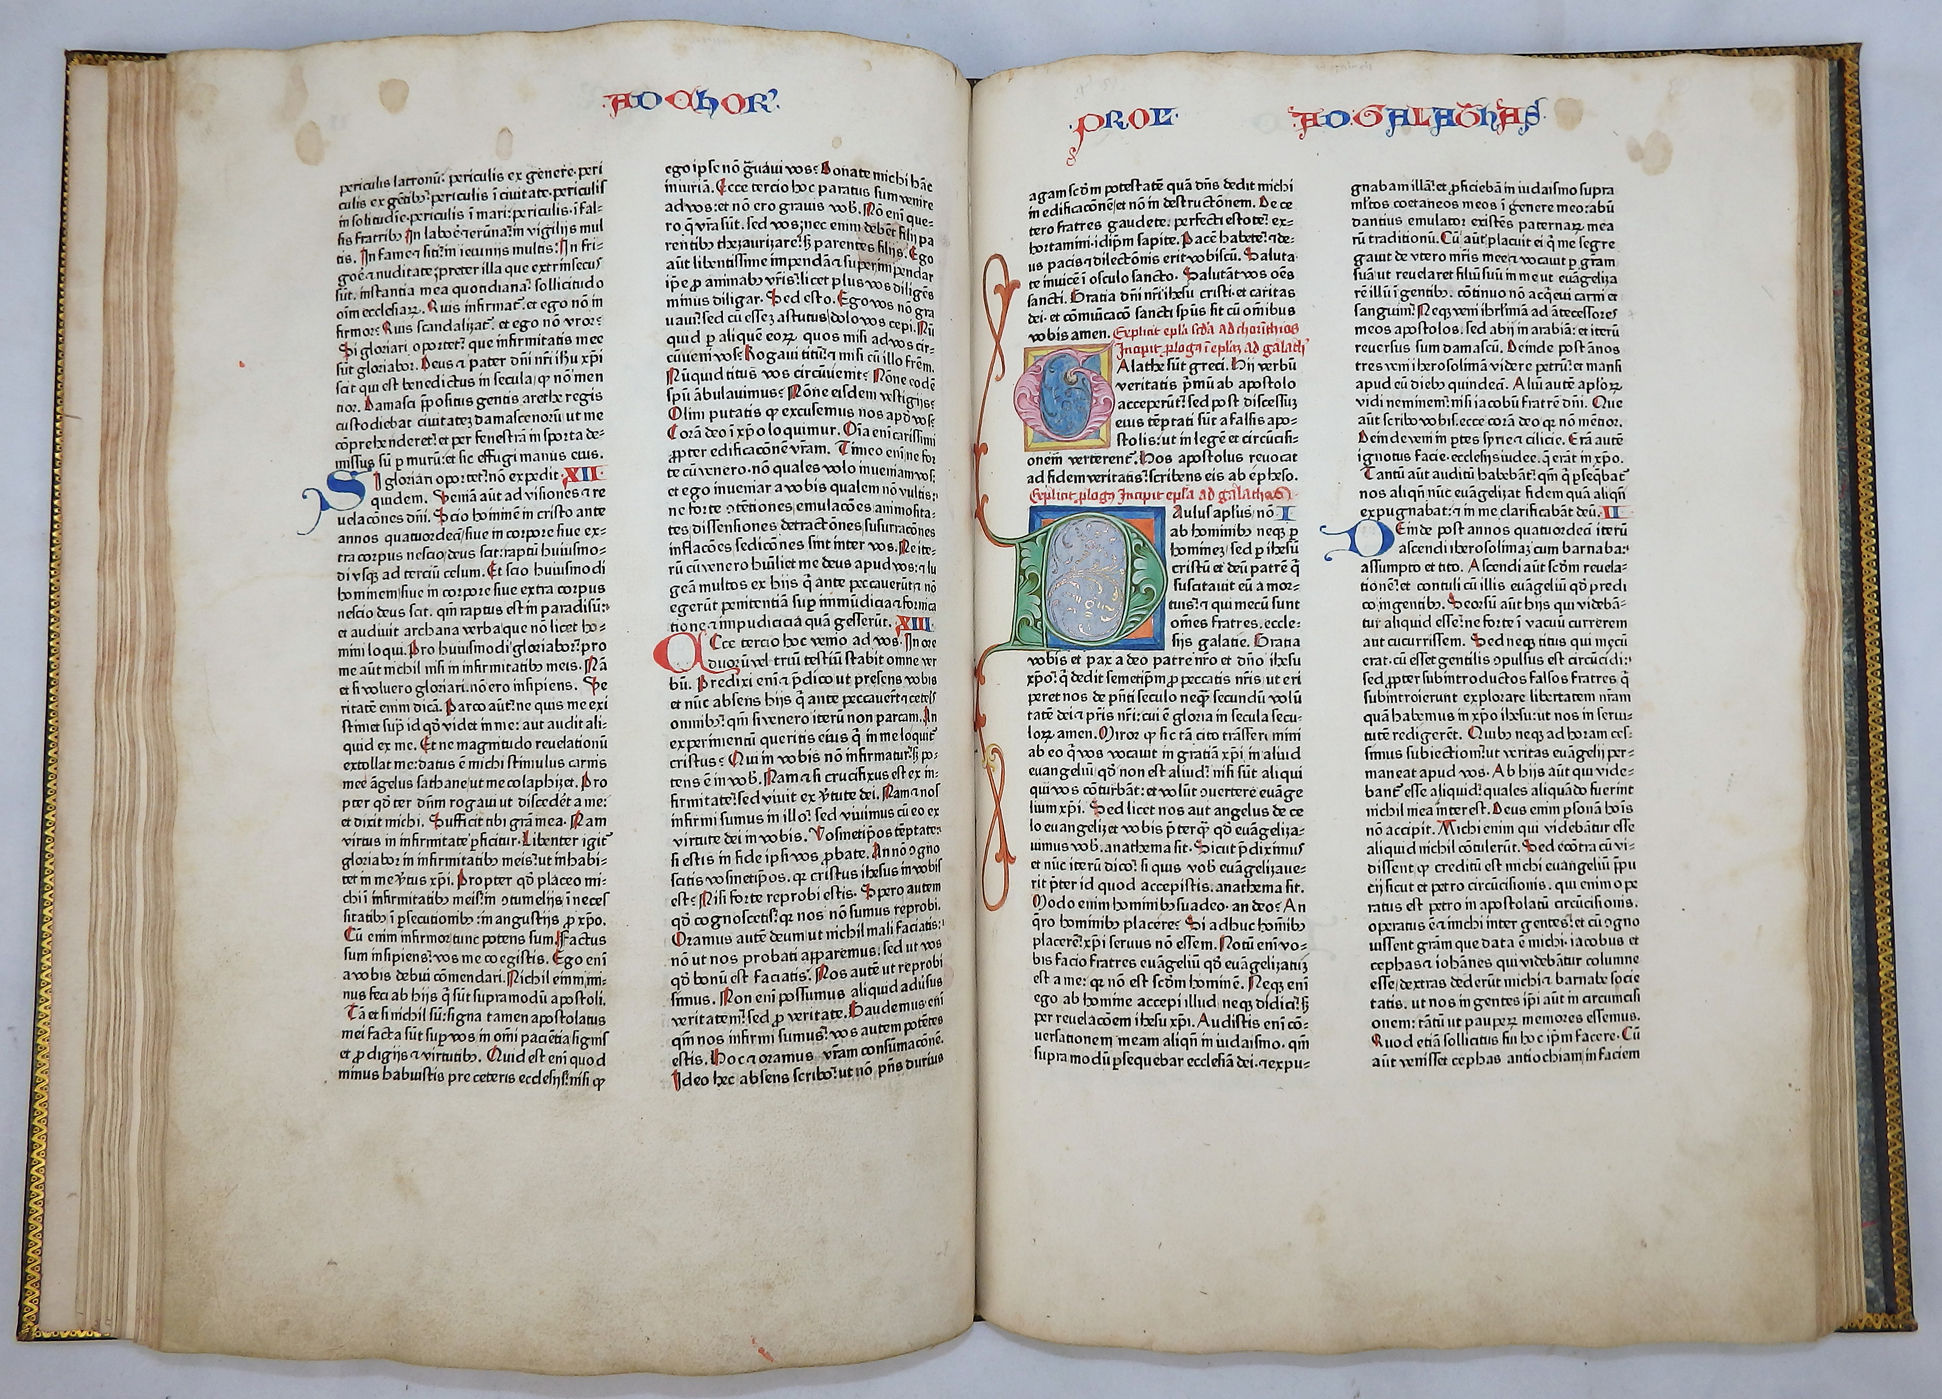 AD CHOR̃
periculis latronũ: periculis ex genere· peri
culis ex gẽtibꝰ: periculis ĩ ciuitate· periculis
in solitudĩe· periculis ĩ mari: periculis· ĩ fal-
sis fratribꝰ In labore ⁊ erũna: in vigilijs mul
tis. In fame ⁊ siti: in ieiunijs multis: In fri-
gore ⁊ nuditate: preter illa que extrinsecus
sũt. instantia mea quotidiana: sollicitudo
oĩm ecclesiaꝝ. Quis infirmat̃. et ego nõ in
firmor: Quis scandalizat̃. et ego nõ vror:
Si gloriari oportet: que infirmitatis mee
sũt gloriabor. Deus ⁊ pater dñi nr̃i ihũ xp̃i
scit qui est benedictus in secula: ꝙ nõ men
tior. Damasci p̃positus gentis arethe regis
custodiebat ciuitatez damascenorũ ut me
cõprehenderet: et per fenestrã in sporta de-
missus sũ ꝑ murũ: et sic effugi manus eius.
SI gloriari oportet: nõ expedit· XII·
quidem. Veniã aũt ad visiones ⁊ re
uelacões dñi. Scio hominẽ in cristo ante
annos quatuordeci: siue in corpore siue ex-
tra corpus nescio: deus scit: raptũ huiusmo-
di vsqꝫ ad terciũ celum. Et scio huiusmodi
hominem: siue in corpore siue extra corpus
nescio deus scit. qm̃ raptus est in paradisũ:
et audiuit archana verba que nõ licet ho-
mini loqui. Pro huiusmodi gloriabor: pro
me aũt michil nisi in infirmitatibꝰ meis. Nã
et si voluero gloriari. nõ ero insipiens. Ve
ritatẽ enim dicã. Parco aũt: ne quis me exi
stimet sup̃ id qð videt in me: aut audit ali-
quid ex me. Et ne magnitudo reuelationũ
extollat me: datus ẽ michi stimulus carnis
mee ãgelus sathane: ut me colaphizet. Pro
pter qð ter dñm rogaui ut discedẽt a me:
et dixit michi. Sufficit tibi grã mea. Nam
virtus in infirmitate ꝑficitur. Libenter igit̃
gloriabor in infirmitatibꝰ meis: ut inhabi-
tet in me ṽtus xp̃i. Propter qð placeo mi-
chi ĩ infirmitatibꝰ meis: in ↄtumelijs ĩ neces
sitatibꝰ ĩ ꝑsecutionibꝰ: in angustijs ꝓ xp̃o.
Cũ enim infirmor: tunc potens sum. Factus
sum insipiens: vos me coegistis. Ego enĩ
a vobis debui cõmendari. Nichil enim mi-
nus feci ab hijs q̃ sũt supra modũ apostoli.
Tã et si nichil sũ: signa tamen apostolatus
mei facta sũt sup̃ vos in omĩ paciẽtia: signis
et ꝓdigijs ⁊ virtutibꝰ. Quid est enĩ quod
minus habuistis pre ceteris ecclesijs: nisi ꝙ
ego ipse nõ g̃uaui vos: Donate michi hãc
iniuriã. Ecce tercio hoc paratus sum venire
ad vos: et nõ ero grauis vob̃. Nõ enĩ que-
ro q̃ vr̃a sũt. sed vos: nec enim debẽt filij pa
rentibꝰ thezaurizare: ß parentes filijs. Ego
aũt libentissime impendã ⁊ superimpendar
ip̃e ꝓ animabꝰ vr̃is: licet plus vos diligẽs
minus diligar. Sed esto. Ego vos nõ gra
uaui: sed cũ essez astutus: dolo vos cepi. Nũ
quid ꝑ aliquẽ eoꝝ quos misi ad vos cir-
cũueni vos: Rogaui titũ: ⁊ misi cũ illo frẽm.
Nũquid titus vos circũuenit: Nõne eodẽ
sp̃u ãbulauimus: Nõne eisdem vestigijs:
Olim putatis ꝙ excusemus nos apð vos:
Corã deo ĩ xp̃o loquimur. Oĩa enĩ carissimi
ꝓpter edificacõnẽ vr̃am. Timeo enĩ ne for
te cũ venero· nõ quales volo inueniam vos:
et ego inueniar a vobis qualem nõ vultis:
ne forte ↄtẽtiones: emulacões animosita-
tes dissensiones detractõnes: susurracões
inflacões: sedicões sint inter vos. Ne ite-
rũ cũ venero hũiliet me deus apud vos: ⁊ lu
geã multos ex hijs q̃ ante peccauerũt ⁊ nõ
egerũt penitentiã sup̃ immũdicia ⁊ fornica
tione ⁊ impudicicia quã gesserũt. XIII
ECce tercio hoc venio ad vos. In ore
duorũ vel triũ testiũ stabit omne ver
bũ. Predixi enĩ ⁊ p̃dico ut presens vobis
et nũc absens hijs q̃ ante peccauerũt ⁊ ceteris
omnibꝰ: qm̃ si venero iterũ non parcam. An
experimentũ queritis eius q̃ in me loquit̃
cristus: Qui in vobis nõ infirmatur: ß po-
tens ẽ in vob̃. Nam ⁊ si crucifixus est ex in-
firmitate: sed viuit ex ṽtute dei. Nam ⁊ nos
infirmi sumus in illo: sed viuimus cũ eo ex
virtute dei in vobis. Vosmetip̃os tẽptate:
si estis in fide ip̃si vos ꝓbate. An nõ ↄgno
scitis vosmetip̃os. qꝛ cristus ihesus in vobis
est: Nisi forte reprobi estis. Spero autem
qð cognoscetis: qꝛ nos nõ sumus reprobi.
Oramus autẽ deum: ut nichil mali faciatis:
nõ ut nos probati appareamus: sed ut vos
qð bonũ est faciatis. Nos autẽ ut reprobi
simus. Non enĩ possumus aliquid aduersus
veritatem: sed ꝓ veritate. Gaudemus enĩ
qm̃ nos infirmi sumus: vos autem potẽtes
estis. Hoc ⁊ oramus vr̃am consũmacõnẽ.
Ideo hec absens scribo: ut nõ p̃ñs durius
PROL· AD· GALATHAS·
agam scðm potestatẽ quã dñs dedit michi
in edificacõnẽ: et nõ in destructõnem. De ce
tero fratres gaudete: perfecti estote: ex-
hortamini· idip̃m sapite. Pacẽ habete: ⁊ de-
us pacis ⁊ dilectõnis erit vobiscũ. Saluta
te inuicẽ ĩ osculo sancto. Salutãt vos oẽs
sancti. Gratia dñi nr̃i ihesu cristi· et caritas
dei· et cõmũicacõ sancti sp̃us sit cũ omĩbus
vobis amen. Explicit epl̃a scða ad chorĩthios
Incipit ꝓlogꝰ ĩ epl̃az ad galath̃
GAlathe sũt greci. Hij verbũ
veritatis p̃mũ ab apostolo
acceperũt: sed post discessũz
eius tẽptati sũt a falsis apo-
stolis: ut in legẽ et circũcisi-
onem verterent̃. Hos apostolus reuocat
ad fidem veritatis: scribens eis ab epheso.
Explicit ꝓlogꝰ Incipit epl̃a ad galathas
PAulus ap̃lus: nõ I
ab hominibꝰ neqꝫ ꝑ
hominez: sed ꝑ ihesũ
cristũ et deũ patrẽ q̃
suscitauit eũ a mor-
tuis: ⁊ qui mecũ sunt
om̃es fratres. eccle-
sijs galatie. Gratia
vobis et pax a deo patre nr̃o et dño ihesu
xp̃o: q̃ dedit semetip̃m ꝓ peccatis nr̃is: ut eri
peret nos de p̃ñti seculo neqꝫ secundũ volũ
tatẽ dei ⁊ pr̃is nr̃i: cui ẽ gloria in secula secu-
loꝝ amen. Miror ꝙ sic tã cito trãsferimini
ab eo q̃ vos vocauit in gratiã xp̃i in aliud
euangeliũ: qð non est aliud: nisi sũt aliqui
qui vos cõturbãt: et volũt ↄuertere euãge
lium xp̃i. Sed licet nos aut angelus de ce
lo euangelizet vobis p̃terqꝫ qð euãgeliza-
uimus vob̃. anathema sit. Sicut p̃diximus
et nũc iterũ dico: si quis vob̃ euãgelizaue-
rit p̃ter id quod accepistis. anathema sit.
Modo enim hominibꝰ suadeo· an deo: An
q̃ro hominibꝰ placere: Si adhuc hoĩbꝰ
placerẽ: xp̃i seruus nõ essem. Notũ enĩ vo-
bis facio fratres euãgeliũ qð euãgelizatũz
est a me: qꝛ nõ est scðm hominẽ. Neqꝫ enĩ
ego ab homine accepi illud: neqꝫ didici: ß
per reuelacõem ihesu xp̃i. Audistis enĩ cõ-
uersationem meam aliqñ in iudaismo. qm̃
supra modũ ꝑsequebar ecclesiã dei· ⁊ expu-
gnabam illã: et ꝓficiebã in iudaismo supra
ml̃tos coetaneos meos ĩ genere meo: abũ
dantius emulator existẽs paternaꝝ mea
rũ traditionũ. Cũ aũt placuit ei q̃ me segre
gauit de vtero mr̃is mee ⁊ vocauit ꝑ grãm
suã ut reuelaret filiũ suũ in me ut euãgeliza
rẽ illũ ĩ gentibꝰ. cõtinuo nõ acq̃eui carni et
sanguini: Neqꝫ veni ihr̃limã ad ãtecessores
meos apostolos: sed abij in arabiã: et iterũ
reuersus sum damascũ. Deinde post ãnos
tres veni iherosolimã videre petrũ: et mansi
apud eũ diebꝰ quindecĩ. Aliũ autẽ aploꝝ
vidi neminem: nisi iacobũ fratrẽ dñi. Que
aũt scribo vobis: ecce corã deo: qꝛ nõ mẽtior.
Deinde veni in ꝑtes syrie ⁊ cilicie. Erã autẽ
ignotus facie· ecclesijs iudee. q̃ erãt in xp̃o.
Tantũ aũt auditũ habebãt: qm̃ q̃ ꝑseqbat̃
nos aliqñ nũc euãgelizat fidem quã aliqñ
expugnabat: ⁊ in me clarificabãt deũ. II
DEinde post annos quatuordeci iterũ
ascendi iherosolimaz cum barnaba:
assumpto et tito. Ascendi aũt scðm reuela-
tionẽ: et contuli cũ illis euãgeliũ qð predi
co in gentibꝰ. Seorsũ aũt hijs qui videbã-
tur aliquid esse: ne forte ĩ vacuũ currerem
aut cucurrissem. Sed neqꝫ titus qui mecũ
erat· cũ esset gentilis ↄpulsus est circũcidi:
sed ꝓpter subintroductos falsos fratres q̃
subintroierunt explorare libertatem nr̃am
quã habemus in xp̃o ihesu: ut nos in serui-
tutẽ redigerẽt. Quibꝰ neqꝫ ad horam ces-
simus subiectioni: ut veritas euãgelij per-
maneat apud vos. Ab hijs aũt qui vide-
bant̃ esse aliquid: quales aliquãdo fuerint
nichil mea interest. Deus enim ꝑsonã hoĩs
nõ accipit. Michi enim qui videbãtur esse
aliquid michil cõtulerũt. Sed ecõtra cũ vi-
dissent ꝙ creditũ est michi euangeliũ p̃pu
cij sicut et petro circũcisionis. qui enim ope
ratus est petro in apostolatũ circũcisionis.
operatus ẽ ⁊ michi inter gentes: et cũ ↄgno
uissent grãm que data ẽ michi· iacobus et
cephas ⁊ iohãnes qui videbãtur columne
esse: dextras dederũt michi ⁊ barnabe socie
tatis. ut nos in gentes ip̃i aũt in circumcisi
onem: tãtũ ut pauperꝝ memores essemus.
Quod etiã sollicitus fui hoc ip̃m facere. Cũ
aũt venisset cephas antiochiam: in faciem